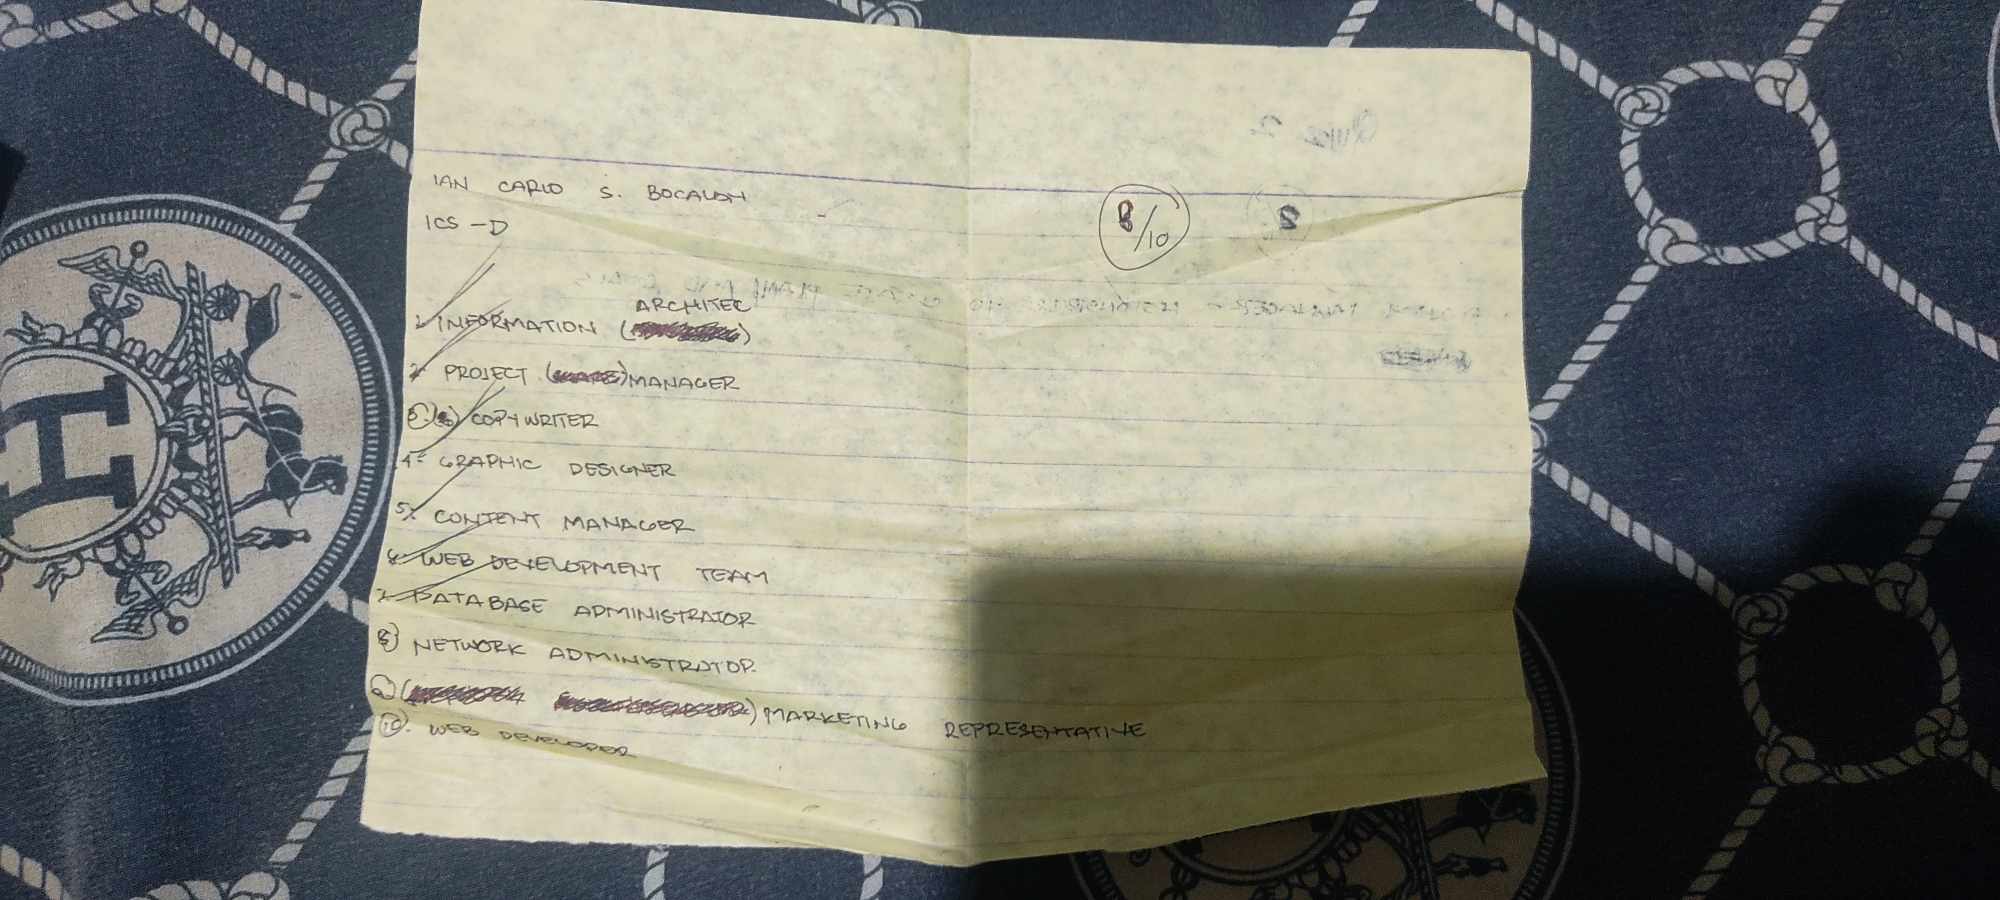 IAN CARLO S. BOCALON
ICS - D
8/10
ARCHITEC
1. INFORMATION ( )
2. PROJECT ( ) MANAGER
3. COPYWRITER
4. GRAPHIC DESIGNER
5. CONTENT MANAGER
6. WEB DEVELOPMENT TEAM
7. DATABASE ADMINISTRATOR
8) NETWORK ADMINISTRATOR
( ) MARKETING REPRESENTATIVE
10. WEB DEVELOPER
H